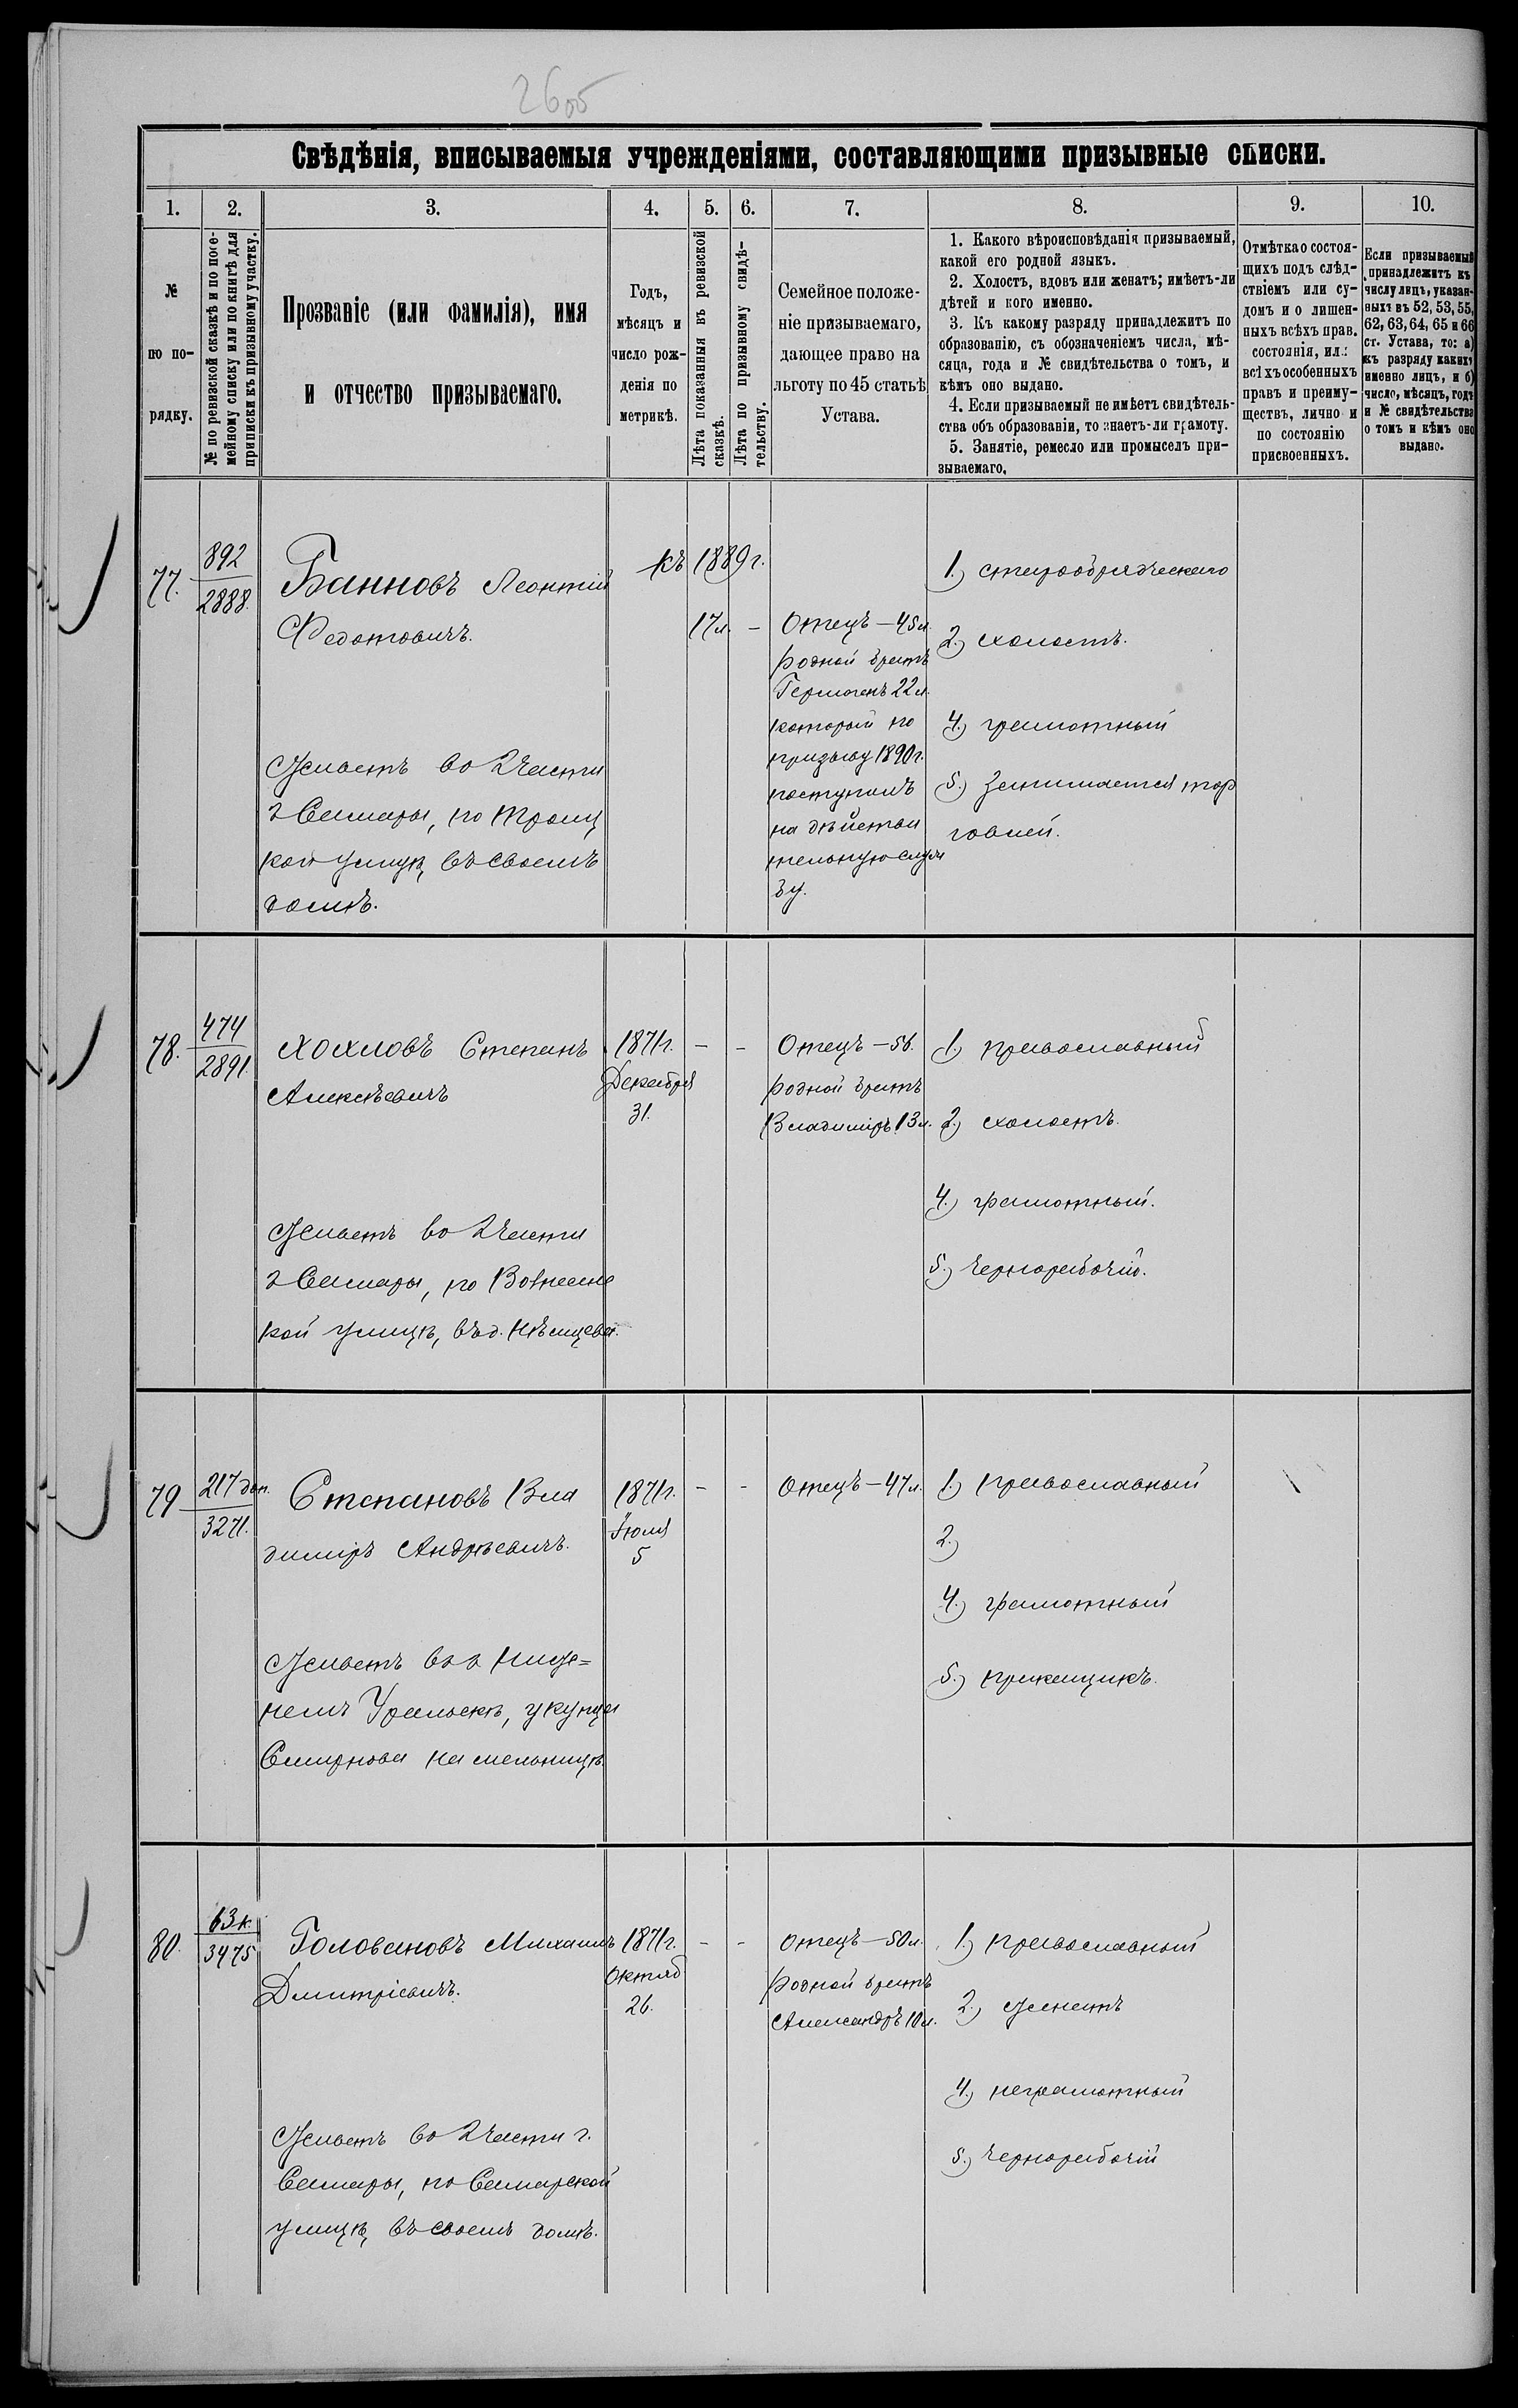 26об
Свѣдѣнія, вписываемыя учрежденіями, составляющими призывные списки.
1. 2. 3. 4. 5. 6. 7. 8. 9. 10.
№
по по-
рядку.
№ по ревизской сказкѣ и по посе-
мейному списку или по книгѣ для
приписки къ призывному участку.
Прозваніе (или фамилія), имя
и отчество призываемаго.
Годъ,
мѣсяцъ и
число рож-
денія по
метрикѣ.
Лѣта показанныя въ ревизской
сказкѣ.
Лѣта по призывному свидѣ-
тельству.
Семейное положе-
ніе призываемаго,
дающее право на
льготу по 45 статьѣ
Устава.
1. Какого вѣроисповѣданія призываемый,
какой его родной языкъ.
2. Холостъ, вдовъ или женатъ; имѣетъ-ли
дѣтей и кого именно.
3. Къ какому разряду принадлежитъ по
образованію, съ обозначеніемъ числа, мѣ-
сяца, года и № свидѣтельства о томъ, и
кѣмъ оно выдано.
4. Если призываемый не имѣетъ свидѣтель-
ства объ образованіи, то знаетъ-ли грамоту.
5. Занятіе, ремесло или промыселъ при-
зываемаго.
Отмѣтка о состоя-
щихъ подъ слѣд-
ствіемъ или су-
домъ и о лишен-
ныхъ всѣхъ прав.
состоянія, или
всѣхъ особенныхъ
правъ и преиму-
ществъ, лично и
по состоянію
присвоенныхъ.
Если призываемый
принадлежитъ къ
числу лицъ, указан-
ныхъ въ 52, 53, 55,
62, 63, 64, 65 и 66
ст. Устава, то: а)
къ разряду какихъ
именно лицъ, и б)
число, мѣсяцъ, годъ
и № свидѣтельства
о томъ и кѣмъ оно
выдано.
77.
892
2888.
Банновъ Леонтій
Федотовичъ.
Живетъ во 2 части
г Самары, по Троиц
кой улицѣ, въ своемъ
домѣ.
къ 1889 г.
17 л. –
Отецъ – 45 л.
родной братъ
Гермогенъ 22 л.
который по
призыву 1890 г.
поступилъ
на дѣйстви
тельную служ
бу.
1.) старообрядческаго
2.) холостъ.
4.) грамотный
5.) Занимается тор
говлей.
78.
474
2891
Хохловъ Степанъ
Алексѣевичъ
Живетъ во 2 части
г Самары, по Вознесенс
кой улицѣ, въ д. Нѣмцева.
1871 г.
Декабря
31.
– –
Отецъ – 56.
родной братъ
Владиміръ 13 л.
1.) православный
2.) холостъ.
4.) грамотный.
5.) Чернорабочій.
79
217 доп.
3271.
Степановъ Вла
диміръ Андрѣевичъ.
Живетъ въ г Ниж=
немъ Уральскѣ, у купца
Смирнова на мельницѣ.
1871 г.
Іюля
5
– –
Отецъ – 47 л.
1.) православный
2.)
4.) грамотный
5.) прикащикъ.
80.
63 к.
3475
Головановъ Михаилъ
Дмитріевичъ.
Живетъ во 2 части г.
Самары, по Самарской
улицѣ, въ своемъ домѣ.
1871 г.
Октяб
26.
– –
отецъ – 50 л.
родной братъ
Александръ 10 л.
1.) православный
2.) женатъ
4.) неграмотный
5.) Чернорабочій